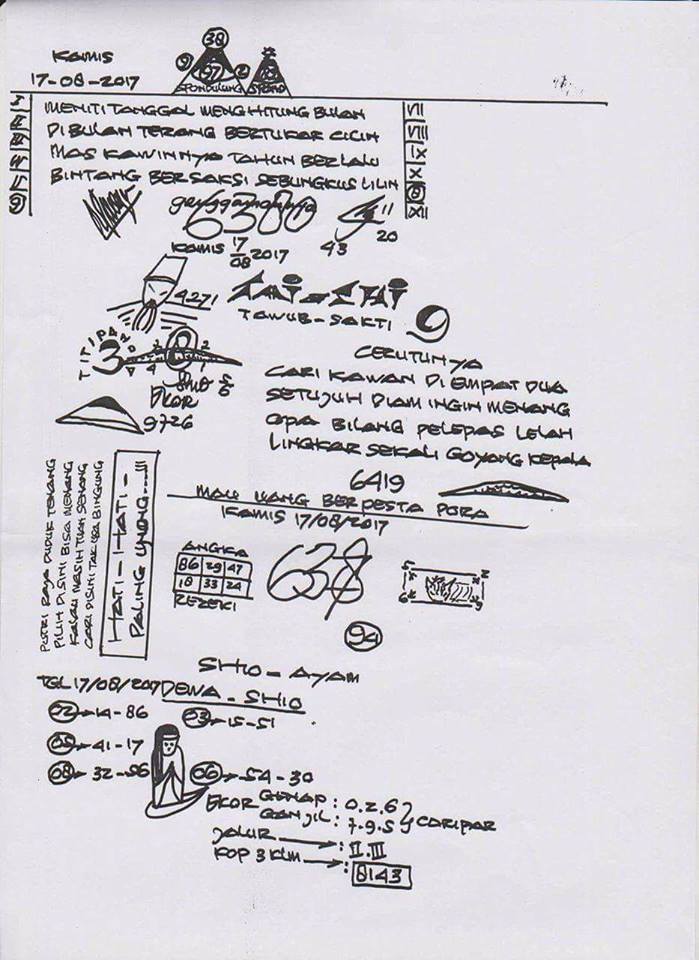 KAMIS
17-08-2017
38
9 97 2
MENITI TANGGAL MENGHITUNG BULAN
DI BULAN TERANG BERTUKAR CICIN
MAS KAWINNYA TAHUN BERLALU
BINTANG BERSAKSI SEBUNGKUS LILIN
VII
VIII
IX
X
XII
6380
11
43 20
KAMIS 17/08 2017
4271
TAI-CHI
TAWUB-SAKTI
9
TITIPAN
3 8
SHIO 5/6
EKOR
9726
CERUTUNYA
CARI KAWAN DI EMPAT DUA
SETUJUH DIAM INGIN MENANG
OPA BILANG PELEPAS LELAH
LINGKAR SEKALI GOYANG KEPALA
6419
MAU UANG BERPESTA PORA
KAMIS 17/08/2017
PUTRI RAJA DUDUK TENANG
PILIH DISINI BISA MENANG
KALAU MASIH TUAN SENANG
CARI DISINI TAK USA BINGUNG
HATI-HATI-
PALING UJUNG....!!!
ANGKA
86 29 47
18 33 24
REZEKI
638
94
SHIO-AYAM
TGL 17/08/2017 DEWA-SHIO
02 14-86
03 15-51
05 41-17
08 32-56
06 54-30
EKOR GENAP : 0.2.6
GANJIL : 7.9.5 CORIPAR
JALUR : II.III
KOP 3 KLM : 8143